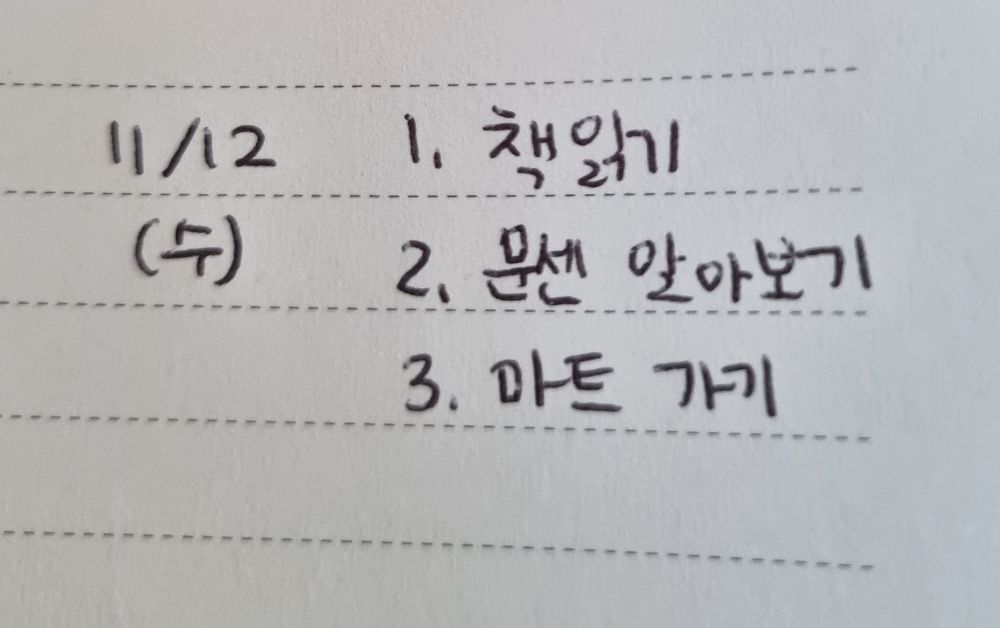 11/12 1. 책읽기
(수) 2. 문센 알아보기
3. 마트 가기